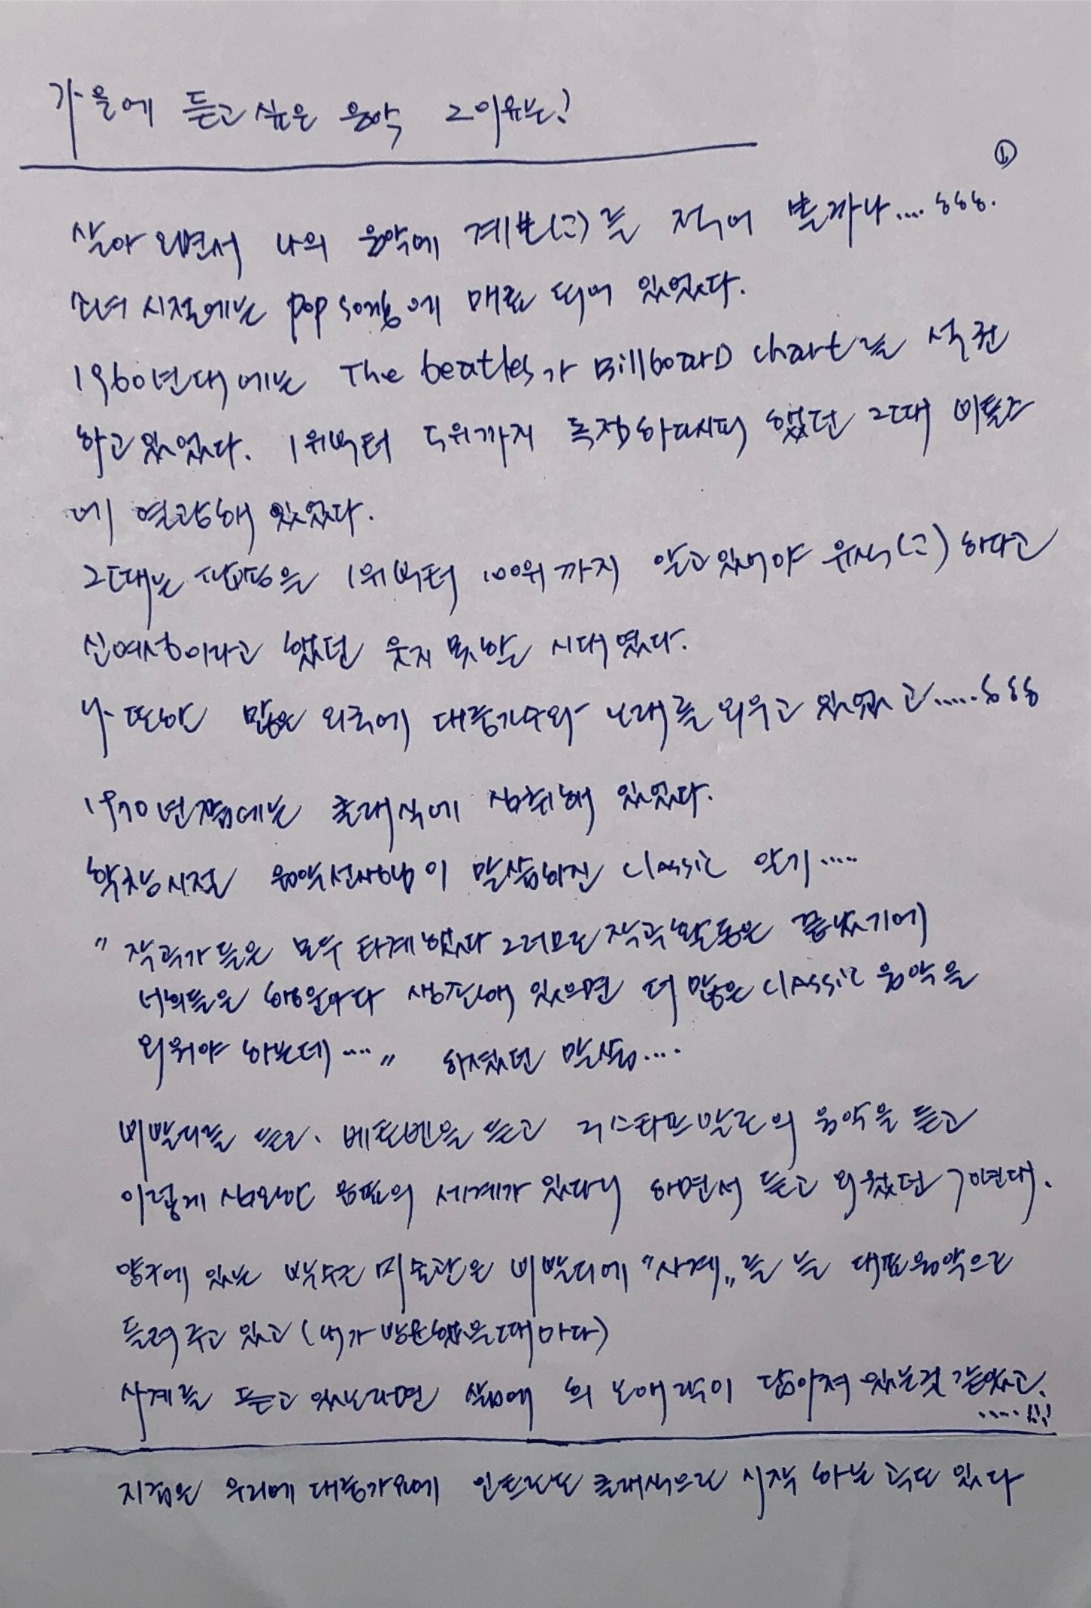 가을에 듣고 싶은 음악 그 이유는?
①
살아 오면서 나의 음악에 계보(?)를 적어 볼까나.... ㅎㅎㅎ.
소녀 시절에는 pop song에 매료 되어 있었다.
1960년대에는 The beatles가 BillboarD chart를 석권
하고 있었다. 1위부터 5위까지 독점하다시피 했던 그때 비틀즈
에 열광해 있었다.
그때는 팝송을 1위부터 100위까지 알고 있어야 유식(?)하다고
신여성이라고 했던 웃지 못할 시대였다.
나 또한 많은 외국에 대중가수와 노래를 외우고 있었고..... ㅎㅎㅎ
1970년쯤에는 클래식에 심취해 있었다.
학창시절 음악선생님이 말씀하신 classic 알기.....
" 작곡가들은 모두 타계했다 그러므로 작곡 활동은 끝났기에
너희들은 행운아다 생존해 있으면 더 많은 classic 음악을
외워야 하는데 ....." 하셨던 말씀....
비발디를 듣고, 베토벤을 듣고 구스타프말로의 음악을 듣고
이렇게 심오한 음표의 세계가 있다니 하면서 듣고 외웠던 70년대.
양구에 있는 박수근 미술관은 비발디에 "사계"를 늘 대표음악으로
들려 주고 있고 (내가 방문했을때마다)
사계를 듣고 있노라면 삶에 희노애락이 담아져 있는것 같았고.
.....!!!
지금은 우리에 대중가요에 인트로도 클래식으로 시작 하는 곡도 있다